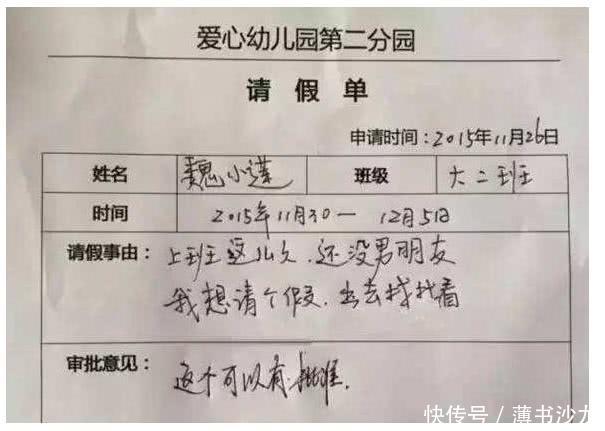 爱心幼儿园第二分园
请假单
申请时间:2015年11月26日
姓名 魏小莲 班级 大二班
时间 2015年11月30一 12月5日
请假事由: 上班这么久.还没男朋友
我想请个假.出去找找看
审批意见: 这个可以有.批准.
快传号/薄书沙龙